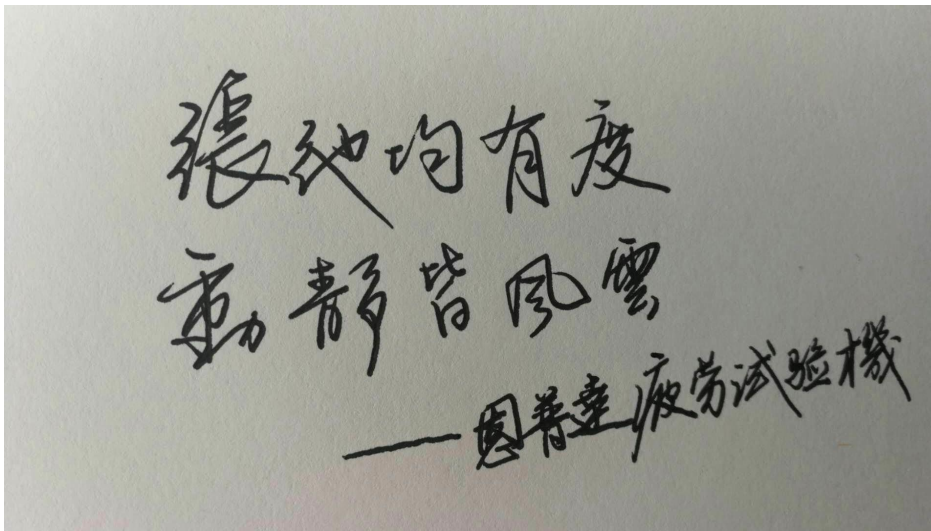 張弛均有度
動靜皆風雲
——恩普達疲劳試验機